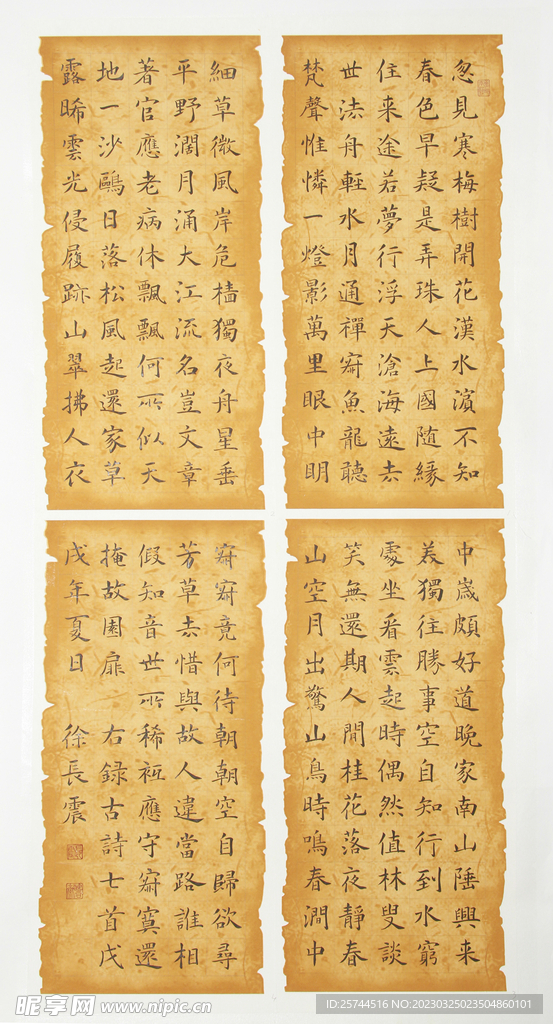 忽見寒梅樹開花漢水濱不知
春色早疑是弄珠人上國随緣
住来途若夢行浮天滄海遠去
世法舟輕水月通禪寂魚龍聽
梵聲惟憐一燈影萬里眼中明
細草微風岸危樯獨夜舟星垂
平野濶月涌大江流名豈文章
著官應老病休飄飄何所似天
地一沙鷗日落松風起還家草
露晞雲光侵履跡山翠拂人衣
中歲頗好道晚家南山陲興来
美獨往勝事空自知行到水窮
處坐看雲起時偶然值林叟談
笑無還期人閒桂花落夜靜春
山空月出驚山鳥時鳴春澗中
寂寂竟何待朝朝空自歸欲尋
芳草去惜與故人違當路誰相
假知音世所稀祗應守寂寞還
掩故園扉 右録古詩七首戊
戌年夏日 徐長震
昵享网 www.nipic.cn
ID:25744516 NO:20230325023504860101